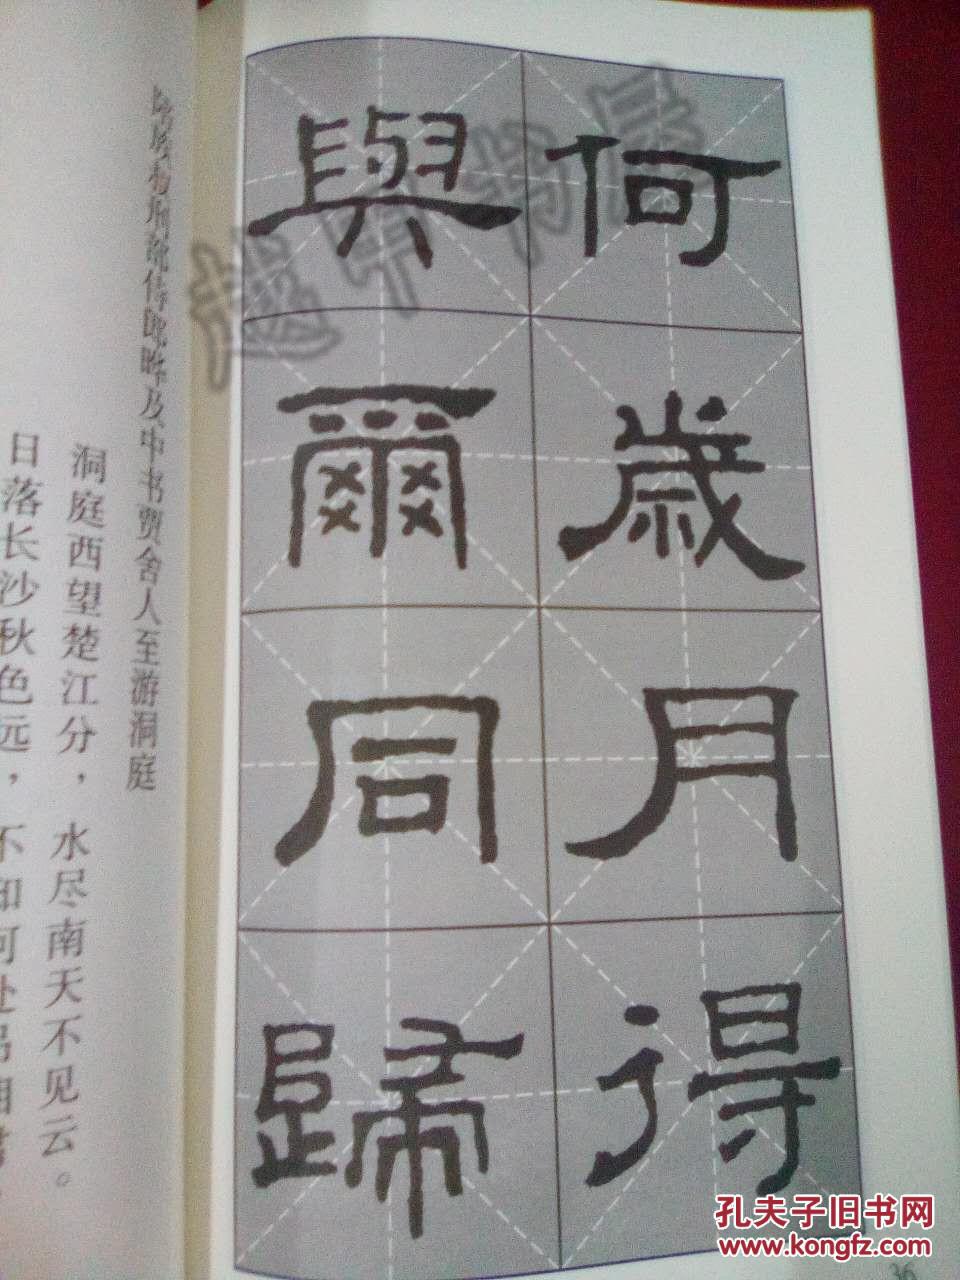 何歲月得
與爾同歸
陪族叔刑部侍郎晔及中书贾舍人至游洞庭
洞庭西望楚江分，水尽南天不见云。
日落长沙秋色远，不知何处吊湘君
越甲书房
孔夫子旧书网
www.kongfz.com
36